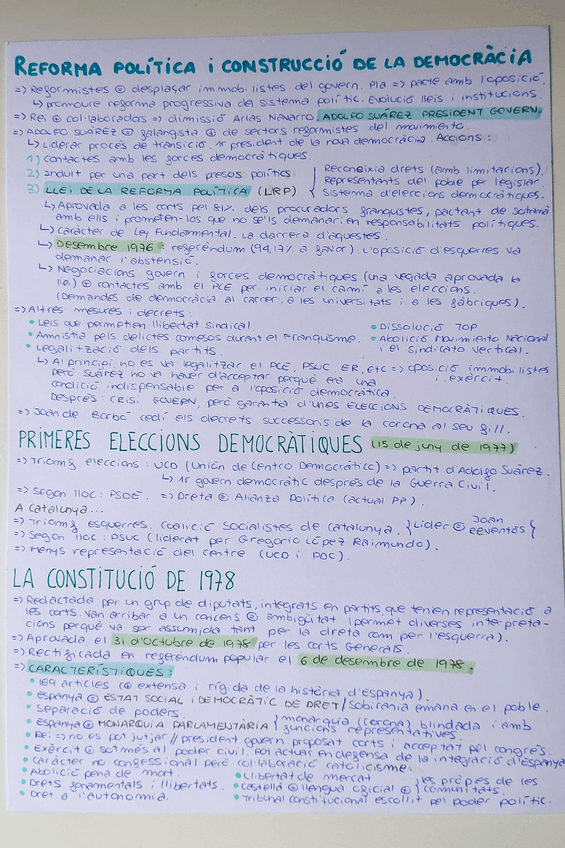 REFORMA POLÍTICA i CONSTRUCCIÓ DE LA DEMOCRÀCIA
=> Reformistes ⊜ desplaçar immobilistes del govern. Pla => pacte amb l'oposició.
↳ promoure reforma progressiva del sistema polític. Evolució lleis i institucions.
=> Rei ⊜ col·laboradors => dimissió Arias Navarro. ADOLFO SUÁREZ PRESIDENT GOVERN.
=> ADOLFO SUÁREZ ⊜ falangista ⊜ de sectors reformistes del movimiento.
↳ Liderar procés de transició. 1r president de la nova democràcia. Accions:
1) Contactes amb les forces democràtiques.
2) Indult per una part dels presos polítics
3) LLEI DE LA REFORMA POLÍTICA (LRP)
Reconeixia drets (amb limitacions).
Representants del poble per legislar.
Sistema d'eleccions democràtiques.
↳ Aprovada a les corts pel 81% dels procuradors franquistes, pactant de sotamà
amb ells i prometen-los que no se'ls demanarien responsabilitats polítiques.
↳ Caràcter de Ley Fundamental. La darrera d'aquestes.
↳ Desembre 1976: referèndum (94,17% a favor). L'oposició d'esquerres va
demanar l'abstenció.
↳ Negociacions govern i forces democràtiques (una vegada aprovada la
llei) ⊜ contactes amb el PCE per iniciar el camí a les eleccions.
(Demandes de democràcia al carrer, a les universitats i a les fàbriques).
=> Altres mesures i decrets:
• Lleis que permetien llibertat sindical.
• Amnistia pels delictes comesos durant el Franquisme.
• Legalització dels partits.
• Dissolució TOP
• Abolició Movimiento Nacional
i el Sindicato Vertical.
↳ Al principi, no es va legalitzar el PCE, PSUC, ER, etc => oposició immobilistes
però Suárez no va haver d'acceptar perquè era una i exèrcit.
condició indispensable per a l'oposició democràtica.
Després: CRISI GOVERN, però garantia d'unes ELECCIONS DEMOCRÀTIQUES.
=> Joan de Borbó cedí els decrets successoris de la corona al seu fill.
PRIMERES ELECCIONS DEMOCRÀTIQUES (15 de juny de 1977)
=> Triomf eleccions: UCD (Unión de Centro Democrático) => partit d'Adolfo Suárez.
↳ 1r govern democràtic després de la Guerra Civil.
=> Segon lloc: PSOE. => Dreta ⊜ Alianza Política (actual PP).
A Catalunya...
=> Triomf esquerres. Coalició Socialistes de Catalunya. {Líder ⊜ Joan Reventós}
=> Segon lloc: PSUC (liderat per Gregorio López Raimundo).
=> Menys representació del centre (UCD i PDC).
LA CONSTITUCIÓ DE 1978
=> Redactada per un grup de diputats, integrats en partits que tenien representació a
les corts. Van arribar a un concens ⊜ ambigüitat (permet diverses interpreta-
cions perquè va ser assumida tant per la dreta com per l'esquerra).
=> Aprovada el 31 d'Octubre de 1978 per les Corts Generals.
=> Rectificada en referèndum popular el 6 de desembre de 1978.
=> CARACTERÍSTIQUES:
• 169 articles (⊕ extensa i rígida de la història d'Espanya).
• Espanya ⊜ ESTAT SOCIAL i DEMOCRÀTIC DE DRET / Sobirania emana en el poble.
• Separació de poders.
• Espanya ⊜ MONARQUIA PARLAMENTÀRIA {monarquia (corona) blindada i amb
funcions representatives.
• Rei => no es pot jutjar // president govern proposat corts i acceptat pel congrés.
• Exèrcit ⊜ sotmès al poder civil. Pot actuar en defensa de la integració d'Espanya
• Caràcter no confessional però col·laboració catolicisme.
• Abolició pena de mort.
• Drets fonamentals i llibertats.
• Dret a l'autonomia.
• Llibertat de mercat
• Castellà ⊜ llengua oficial ⊜ {les pròpies de les
comunitats.
• Tribunal constitucional escollit pel poder polític.